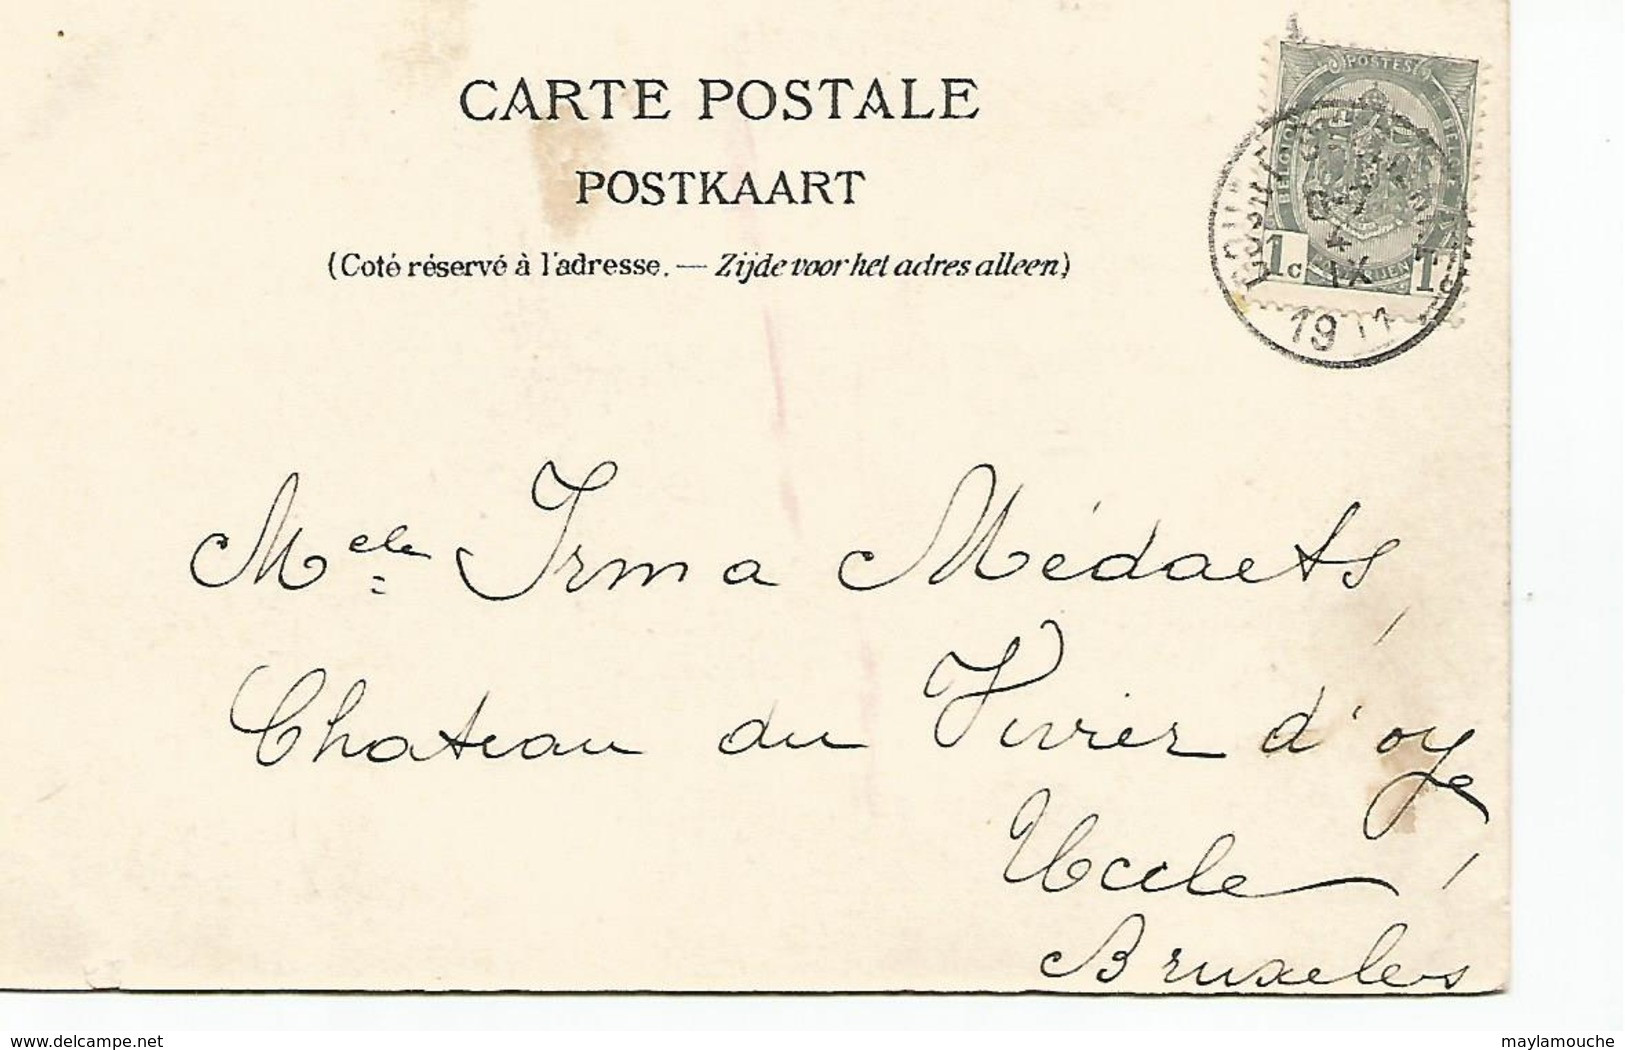 CARTE POSTALE
POSTKAART
(Coté réservé à l'adresse. — Zijde voor het adres alleen)
POSTES
1c 1c
1911
Mele Irma Médaets,
Chateau du Vivier d'oye
Uccle,
Bruxelles
delcampe.net
maylamouche